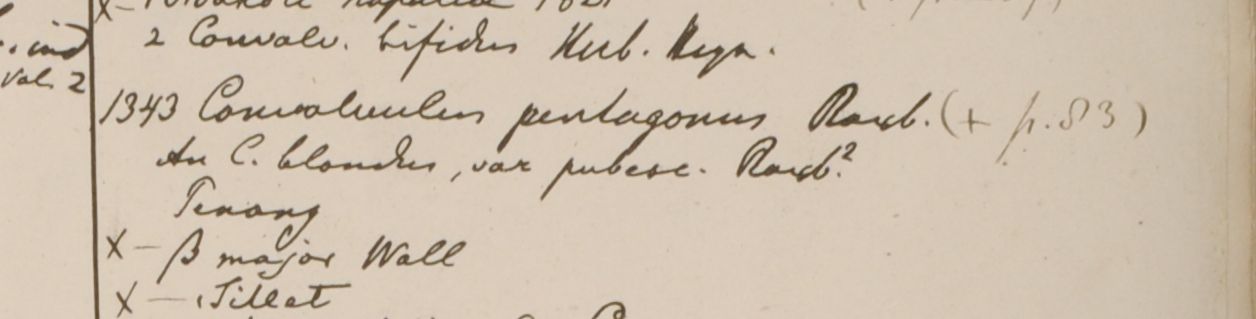 2 Convolv. bifidus Herb. Heyn.
ind
Vol. 2
1343 Convolvulus pentagonus Roxb. (+ p. 83)
An C. blandus, var pubesc. Roxb?
Penang
X — β major Wall
X — Sillet